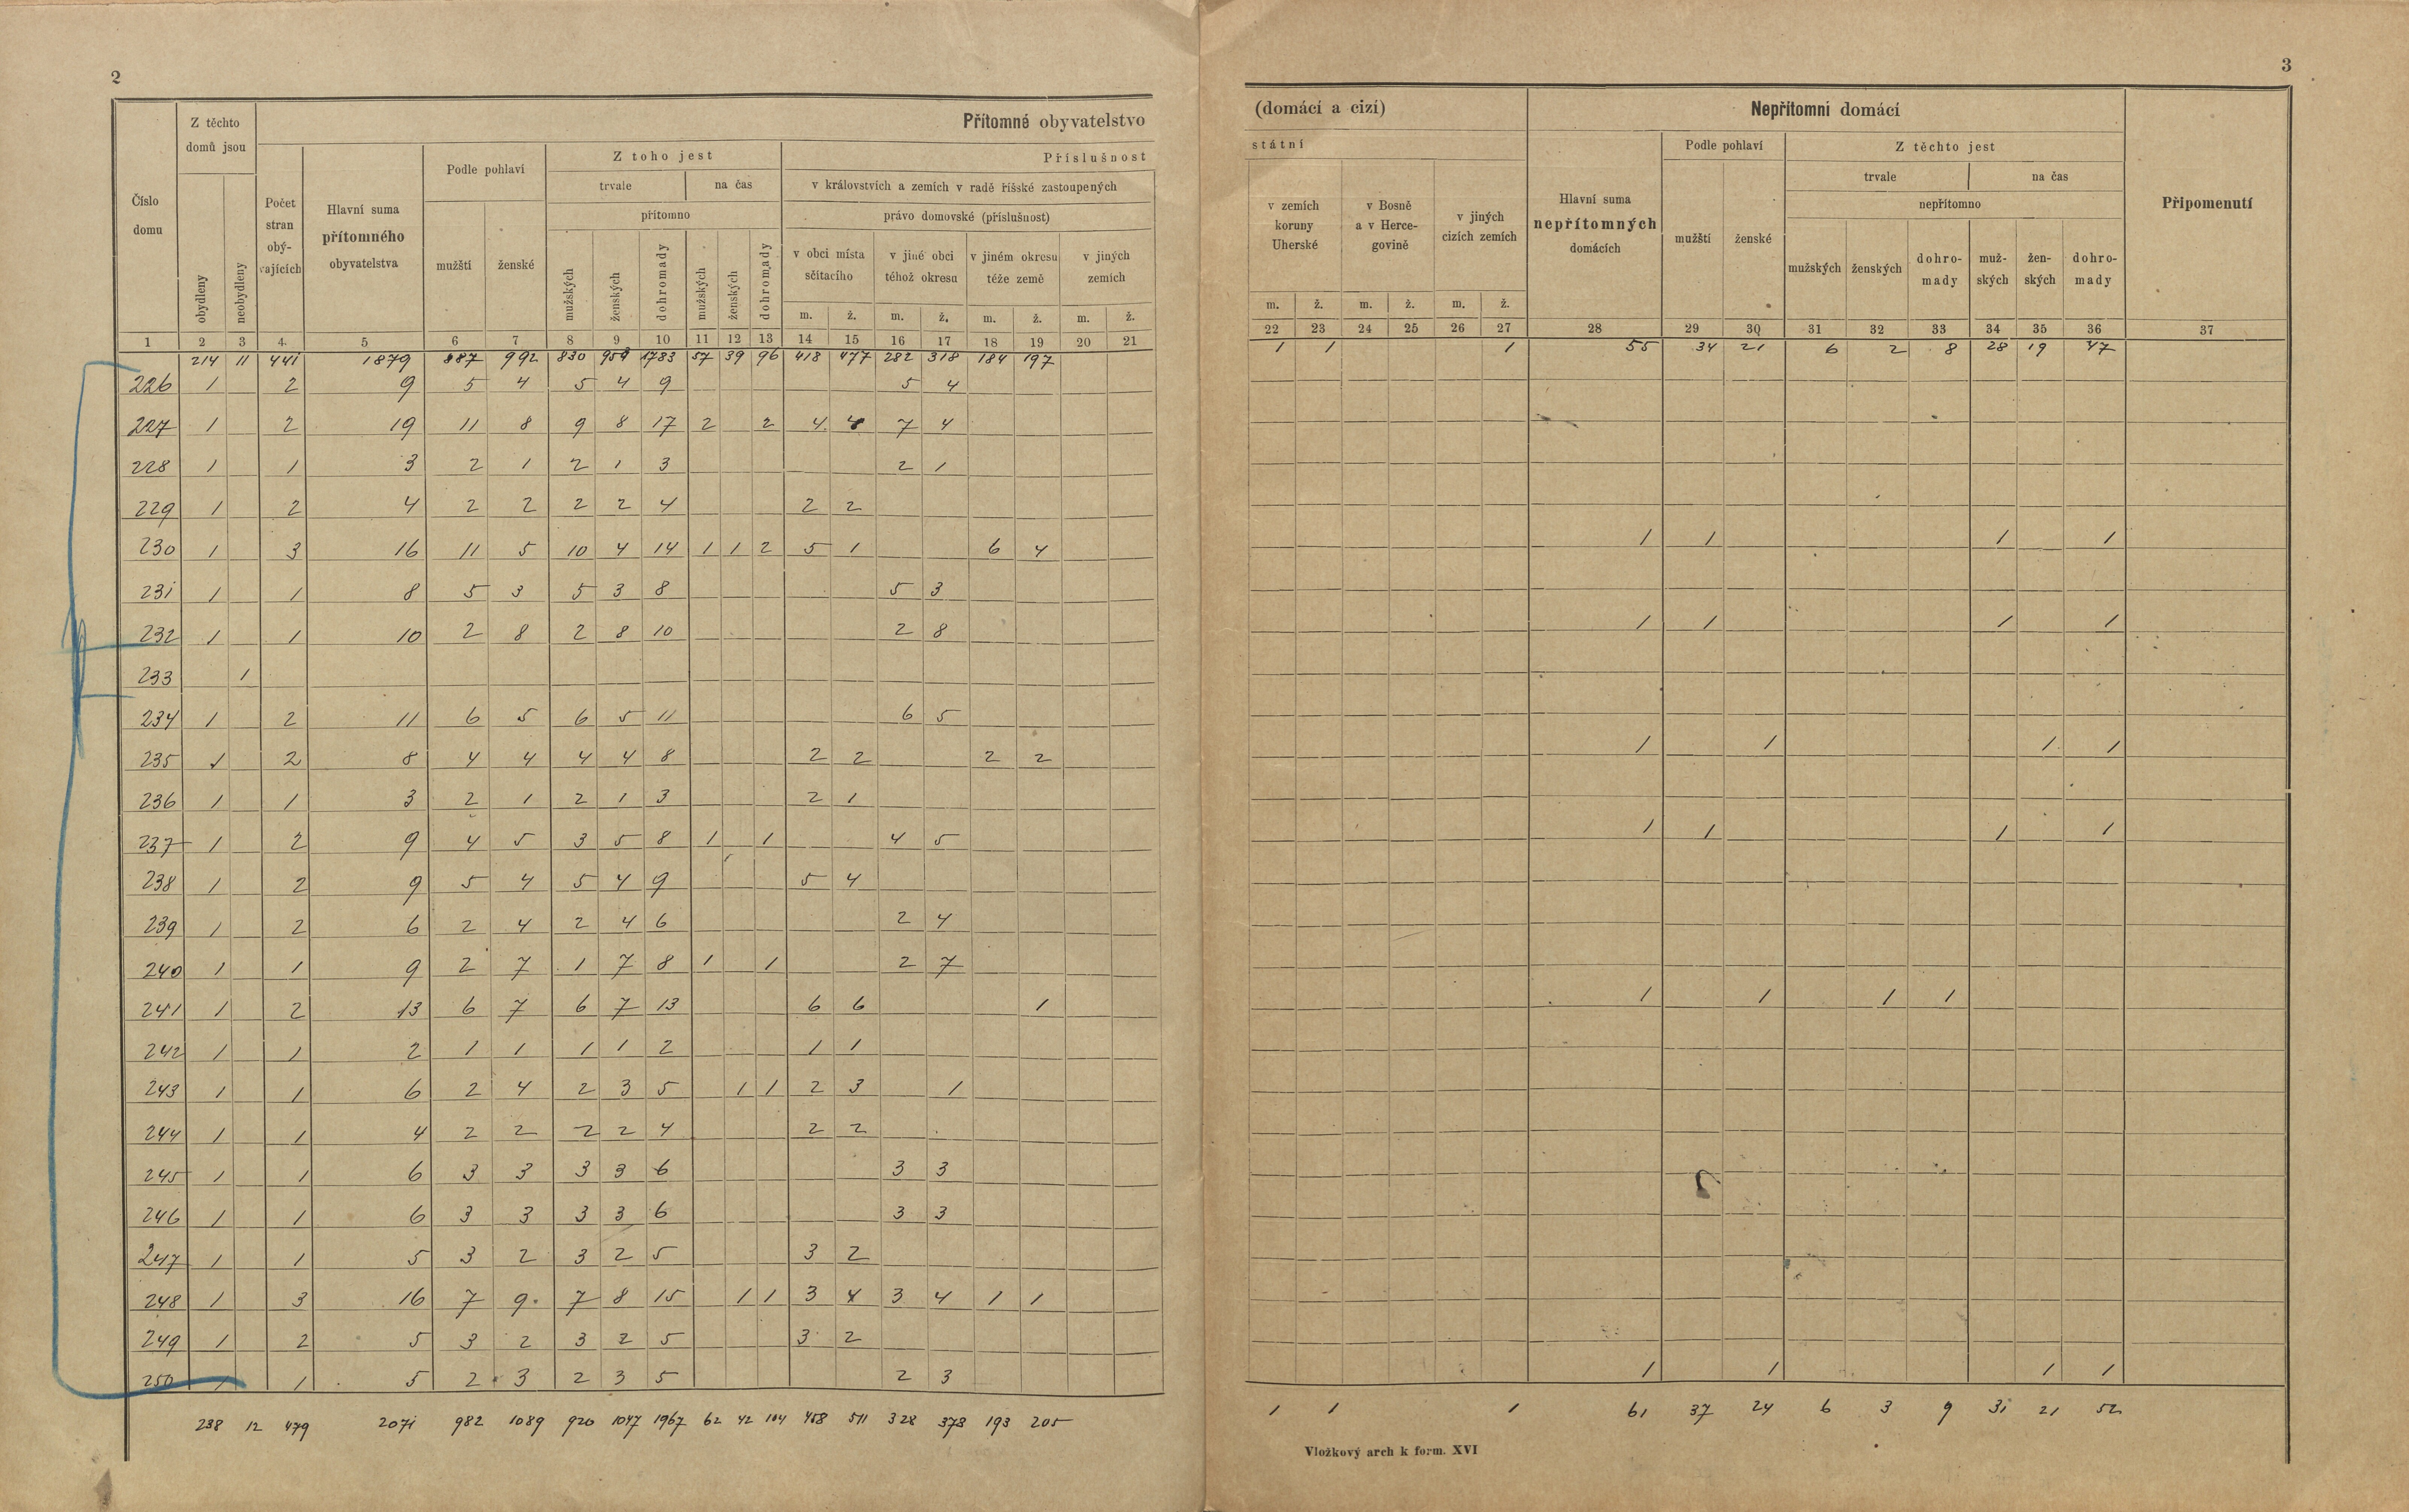 2
3
Číslo domu
Z těchto domů jsou
obydleny
neobydleny
Přítomné obyvatelstvo
(domácí a cizí)
Počet stran obý-vajících
Hlavní suma přítomného obyvatelstva
Podle pohlaví
mužští
ženské
Z toho jest
trvale
na čas
přítomno
mužských
ženských
dohromady
mužských
ženských
dohromady
Příslušnost
státní
v královstvích a zemích v radě říšské zastoupených
právo domovské (příslušnost)
v obci místa sčítacího
v jiné obci téhož okresu
v jiném okresu téže země
v jiných zemích
m. ž. m. ž. m. ž. m. ž.
v zemích koruny Uherské
v Bosně a v Herce-govině
v jiných cizích zemích
m. ž. m. ž. m. ž.
Nepřítomní domácí
Hlavní suma nepřítomných domácích
Podle pohlaví
mužští
ženské
Z těchto jest
trvale
na čas
nepřítomno
mužských
ženských
dohro-mady
muž-ských
žen-ských
dohro-mady
Připomenutí
1 2 3 4 5 6 7 8 9 10 11 12 13 14 15 16 17 18 19 20 21 22 23 24 25 26 27 28 29 30 31 32 33 34 35 36 37
214 11 441 1879 887 992 830 953 1783 57 39 96 418 477 282 318 184 197 1 1 1 55 34 21 6 2 8 28 19 47
226 1 2 9 5 4 5 4 9 5 4
227 1 2 19 11 8 9 8 17 2 2 4 4 7 4
228 1 1 3 2 1 2 1 3 2 1
229 1 2 4 2 2 2 2 4 2 2
230 1 3 16 11 5 10 4 14 1 1 2 5 1 6 4 1 1 1 1
231 1 1 8 5 3 5 3 8 5 3
232 1 1 10 2 8 2 8 10 2 8 1 1 1 1
233 1
234 1 2 11 6 5 6 5 11 6 5
235 1 2 8 4 4 4 4 8 2 2 2 2 1 1 1 1
236 1 1 3 2 1 2 1 3 2 1
237 1 2 9 4 5 3 5 8 1 1 4 5 1 1 1 1
238 1 2 9 5 4 5 4 9 5 4
239 1 2 6 2 4 2 4 6 2 4
240 1 1 9 2 7 1 7 8 1 1 2 7
241 1 2 13 6 7 6 7 13 6 6 1 1 1 1 1
242 1 1 2 1 1 1 1 2 1 1
243 1 1 6 2 4 2 3 5 1 1 2 3 1
244 1 1 4 2 2 2 2 4 2 2
245 1 1 6 3 3 3 3 6 3 3
246 1 1 6 3 3 3 3 6 3 3
247 1 1 5 3 2 3 2 5 3 2
248 1 3 16 7 9 7 8 15 1 1 3 4 3 4 1 1
249 1 2 5 3 2 3 2 5 3 2
250 1 1 5 2 3 2 3 5 2 3 1 1 1 1
238 12 479 2071 982 1089 920 1047 1967 62 42 104 458 511 328 373 193 205 1 1 1 61 37 24 6 3 9 31 21 52
Vložkový arch k form. XVI